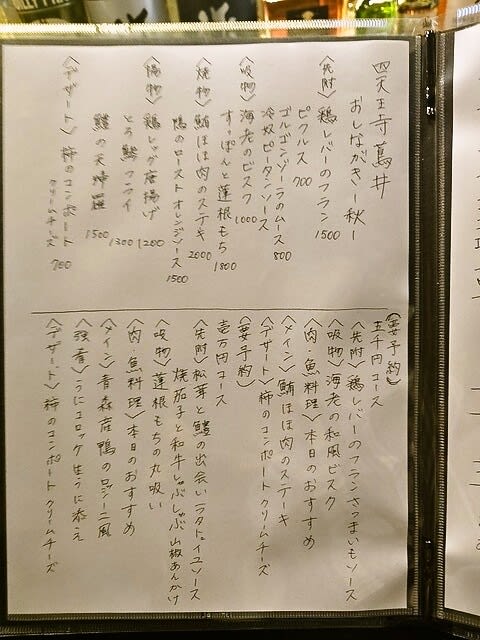 四天王寺 蔦井
おしながき ー秋ー
〈先附〉鶏レバーのフラン 1500
ピクルス 700
ゴルゴンゾーラのムース 800
冷奴ピータンソース
〈吸物〉海老のビスク 1000
すっぽんと蓮根もち 1800
〈焼物〉鮪ほほ肉のステキ 2000
鴨のロースト オレンジソース 1500
〈揚物〉鶏レッグ唐揚げ 1200
とろ鯵フライ 1300
鱧の天婦羅 1500
〈デザート〉柿のコンポート クリームチーズ 700
〈要予約〉
五千円コース
〈先附〉鶏レバーのフランさつまいもソース
〈吸物〉海老の和風ビスク
〈肉・魚料理〉本日のおすすめ
〈メイン〉鮪ほほ肉のステーキ
〈デザート〉柿のコンポート クリームチーズ
〈要予約〉
壱万円コース
〈先附〉松茸と鱧の出会いラタトゥイユソース
焼茄子と和牛しゃぶしゃぶ 山椒あんかけ
〈吸物〉蓮根もちの丸吸い
〈肉・魚料理〉本日のおすすめ
〈メイン〉青森産鴨のロッシーニ風
〈強肴〉うにコロッケ 生うに添え
〈デザート〉柿のコンポート クリームチーズ